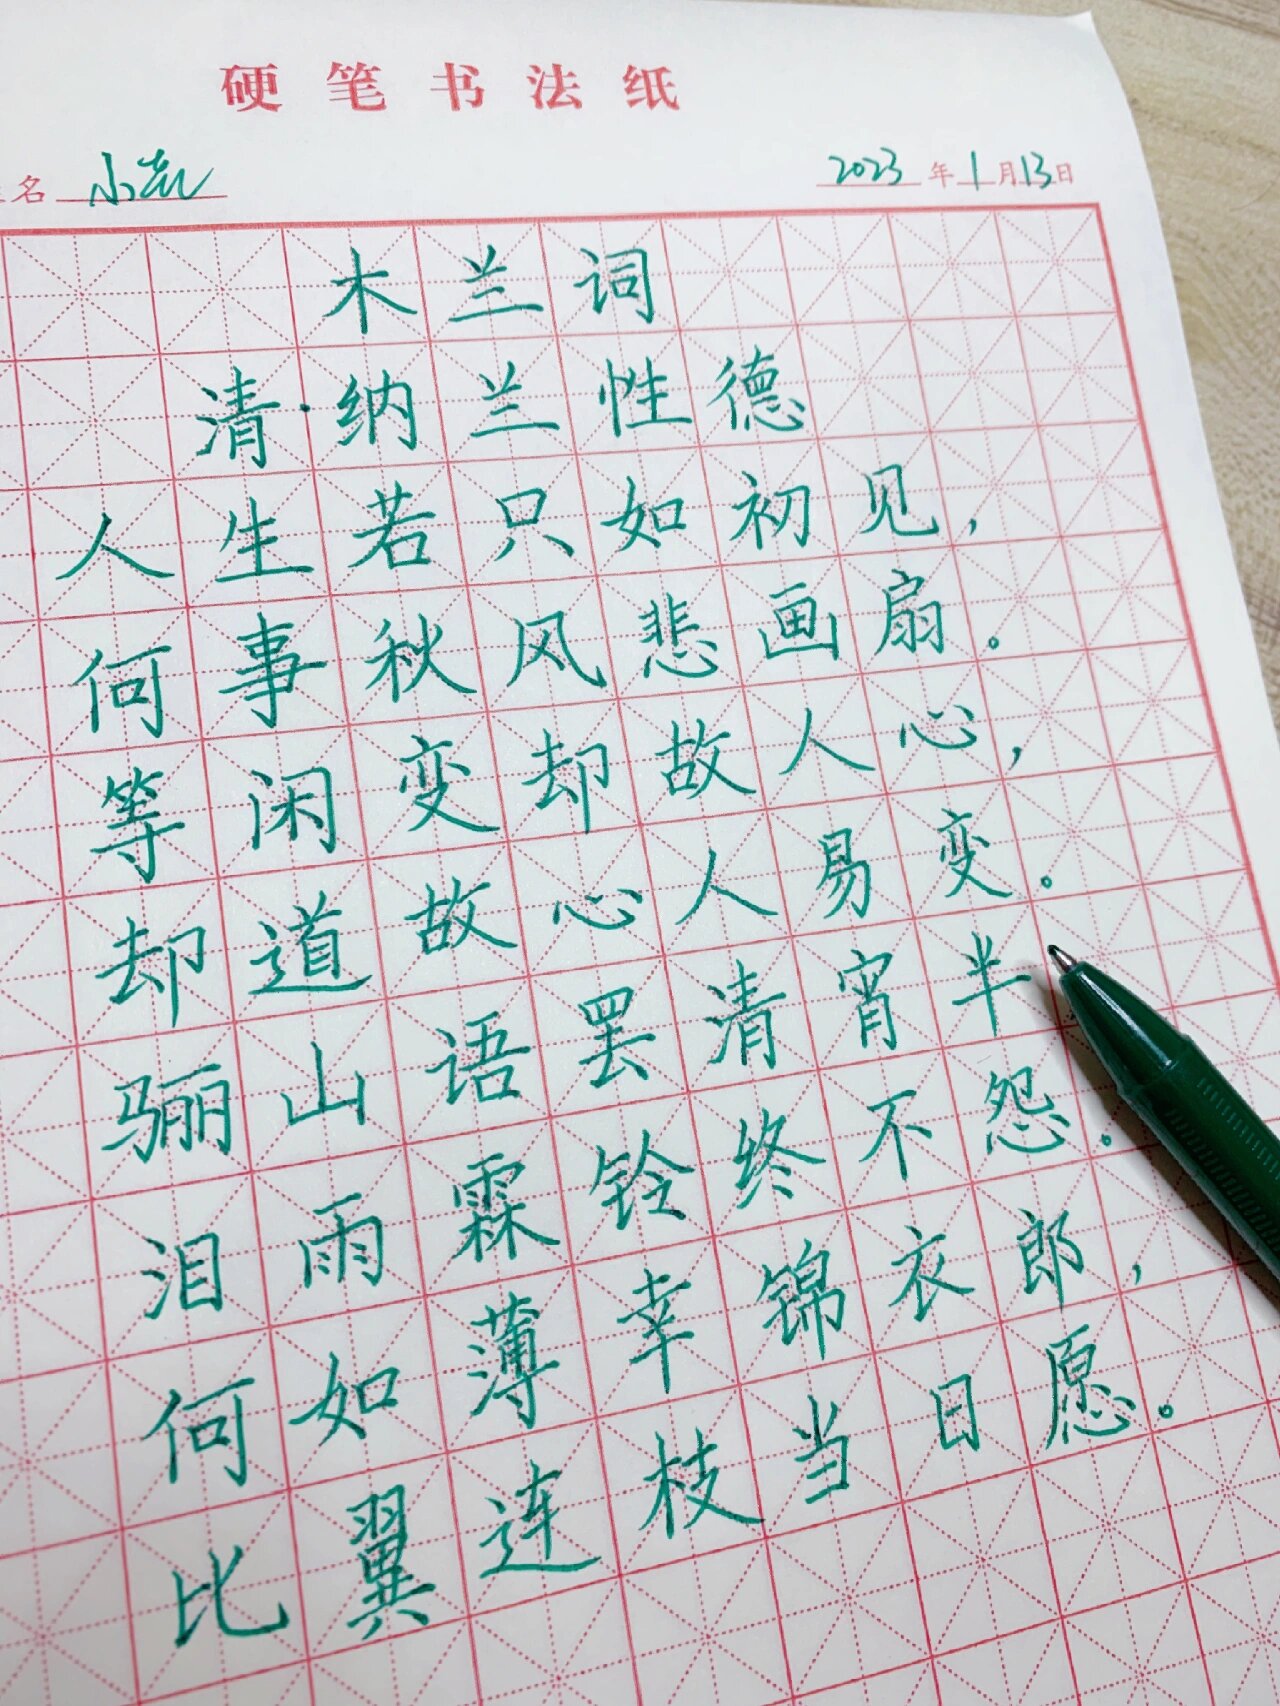 硬笔书法纸
名 小 2023年1月13日
木兰词
清·纳兰性德
人生若只如初见，
何事秋风悲画扇。
等闲变却故人心，
却道故心人易变。
骊山语罢清宵半
泪雨霖铃终不怨.
何如薄幸锦衣郎，
比翼连枝当日愿。